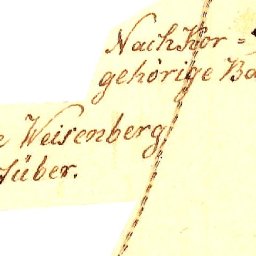 Nach Kor =
gehörige Ba
e Weisenberg
über.